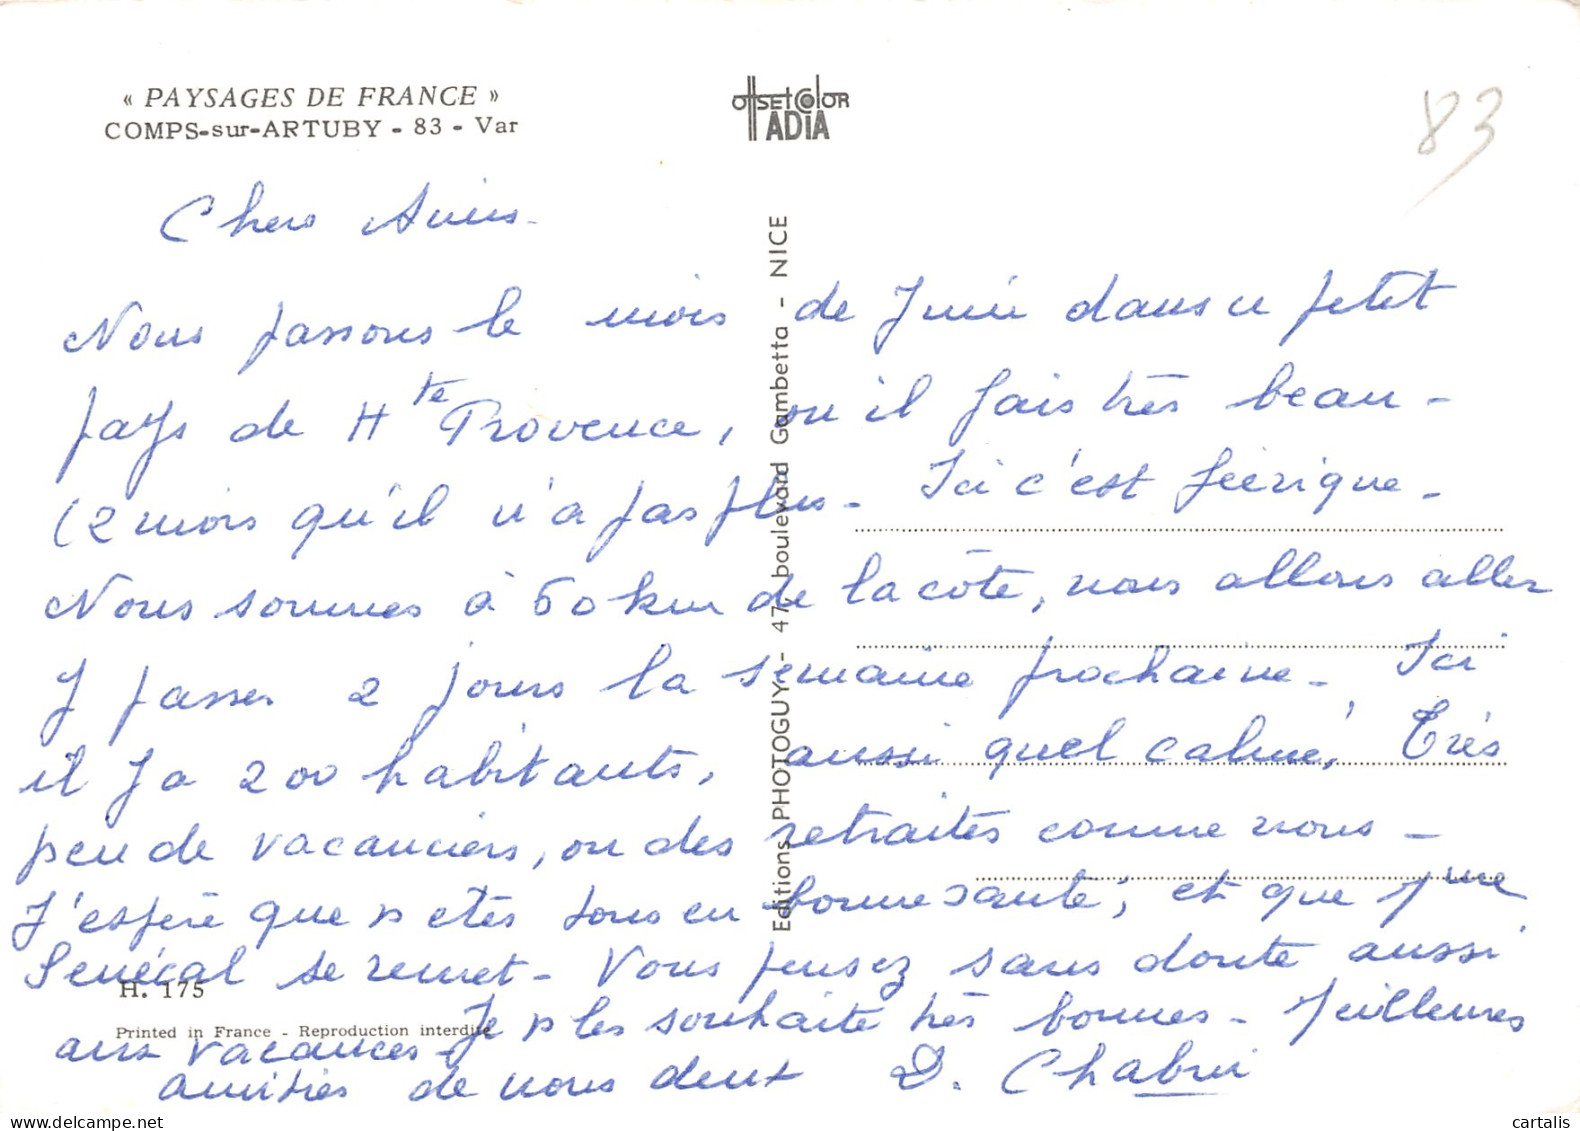 « PAYSAGES DE FRANCE »
COMPS-sur-ARTUBY - 83 - Var
OffSET COlOR
ADIA
83
Chers Amis -
Nous passons le mois de Juin dans ce petit
pays de Hte Provence, ou il fais très beau -
(2 mois qu'il n'a pas plus - Ici c'est féerique -
Nous sommes à 60 km de la côte, nous allons aller
y passer 2 jours la semaine prochaine - Ici
il y a 200 habitants, aussi quel calme! Très
peu de vacanciers, ou des retraités comme nous -
J'espère que v etes tous en bonne santé, et que Mme
Senécal se remet - Vous pensez sans doute aussi
aux vacances - Je v les souhaite très bonnes - Meilleures
amitiés de nous deux D. Chabri
Editions PHOTOGUY - 47, boulevard Gambetta - NICE
H. 175
Printed in France - Reproduction interdite
cartalis
www.delcampe.net